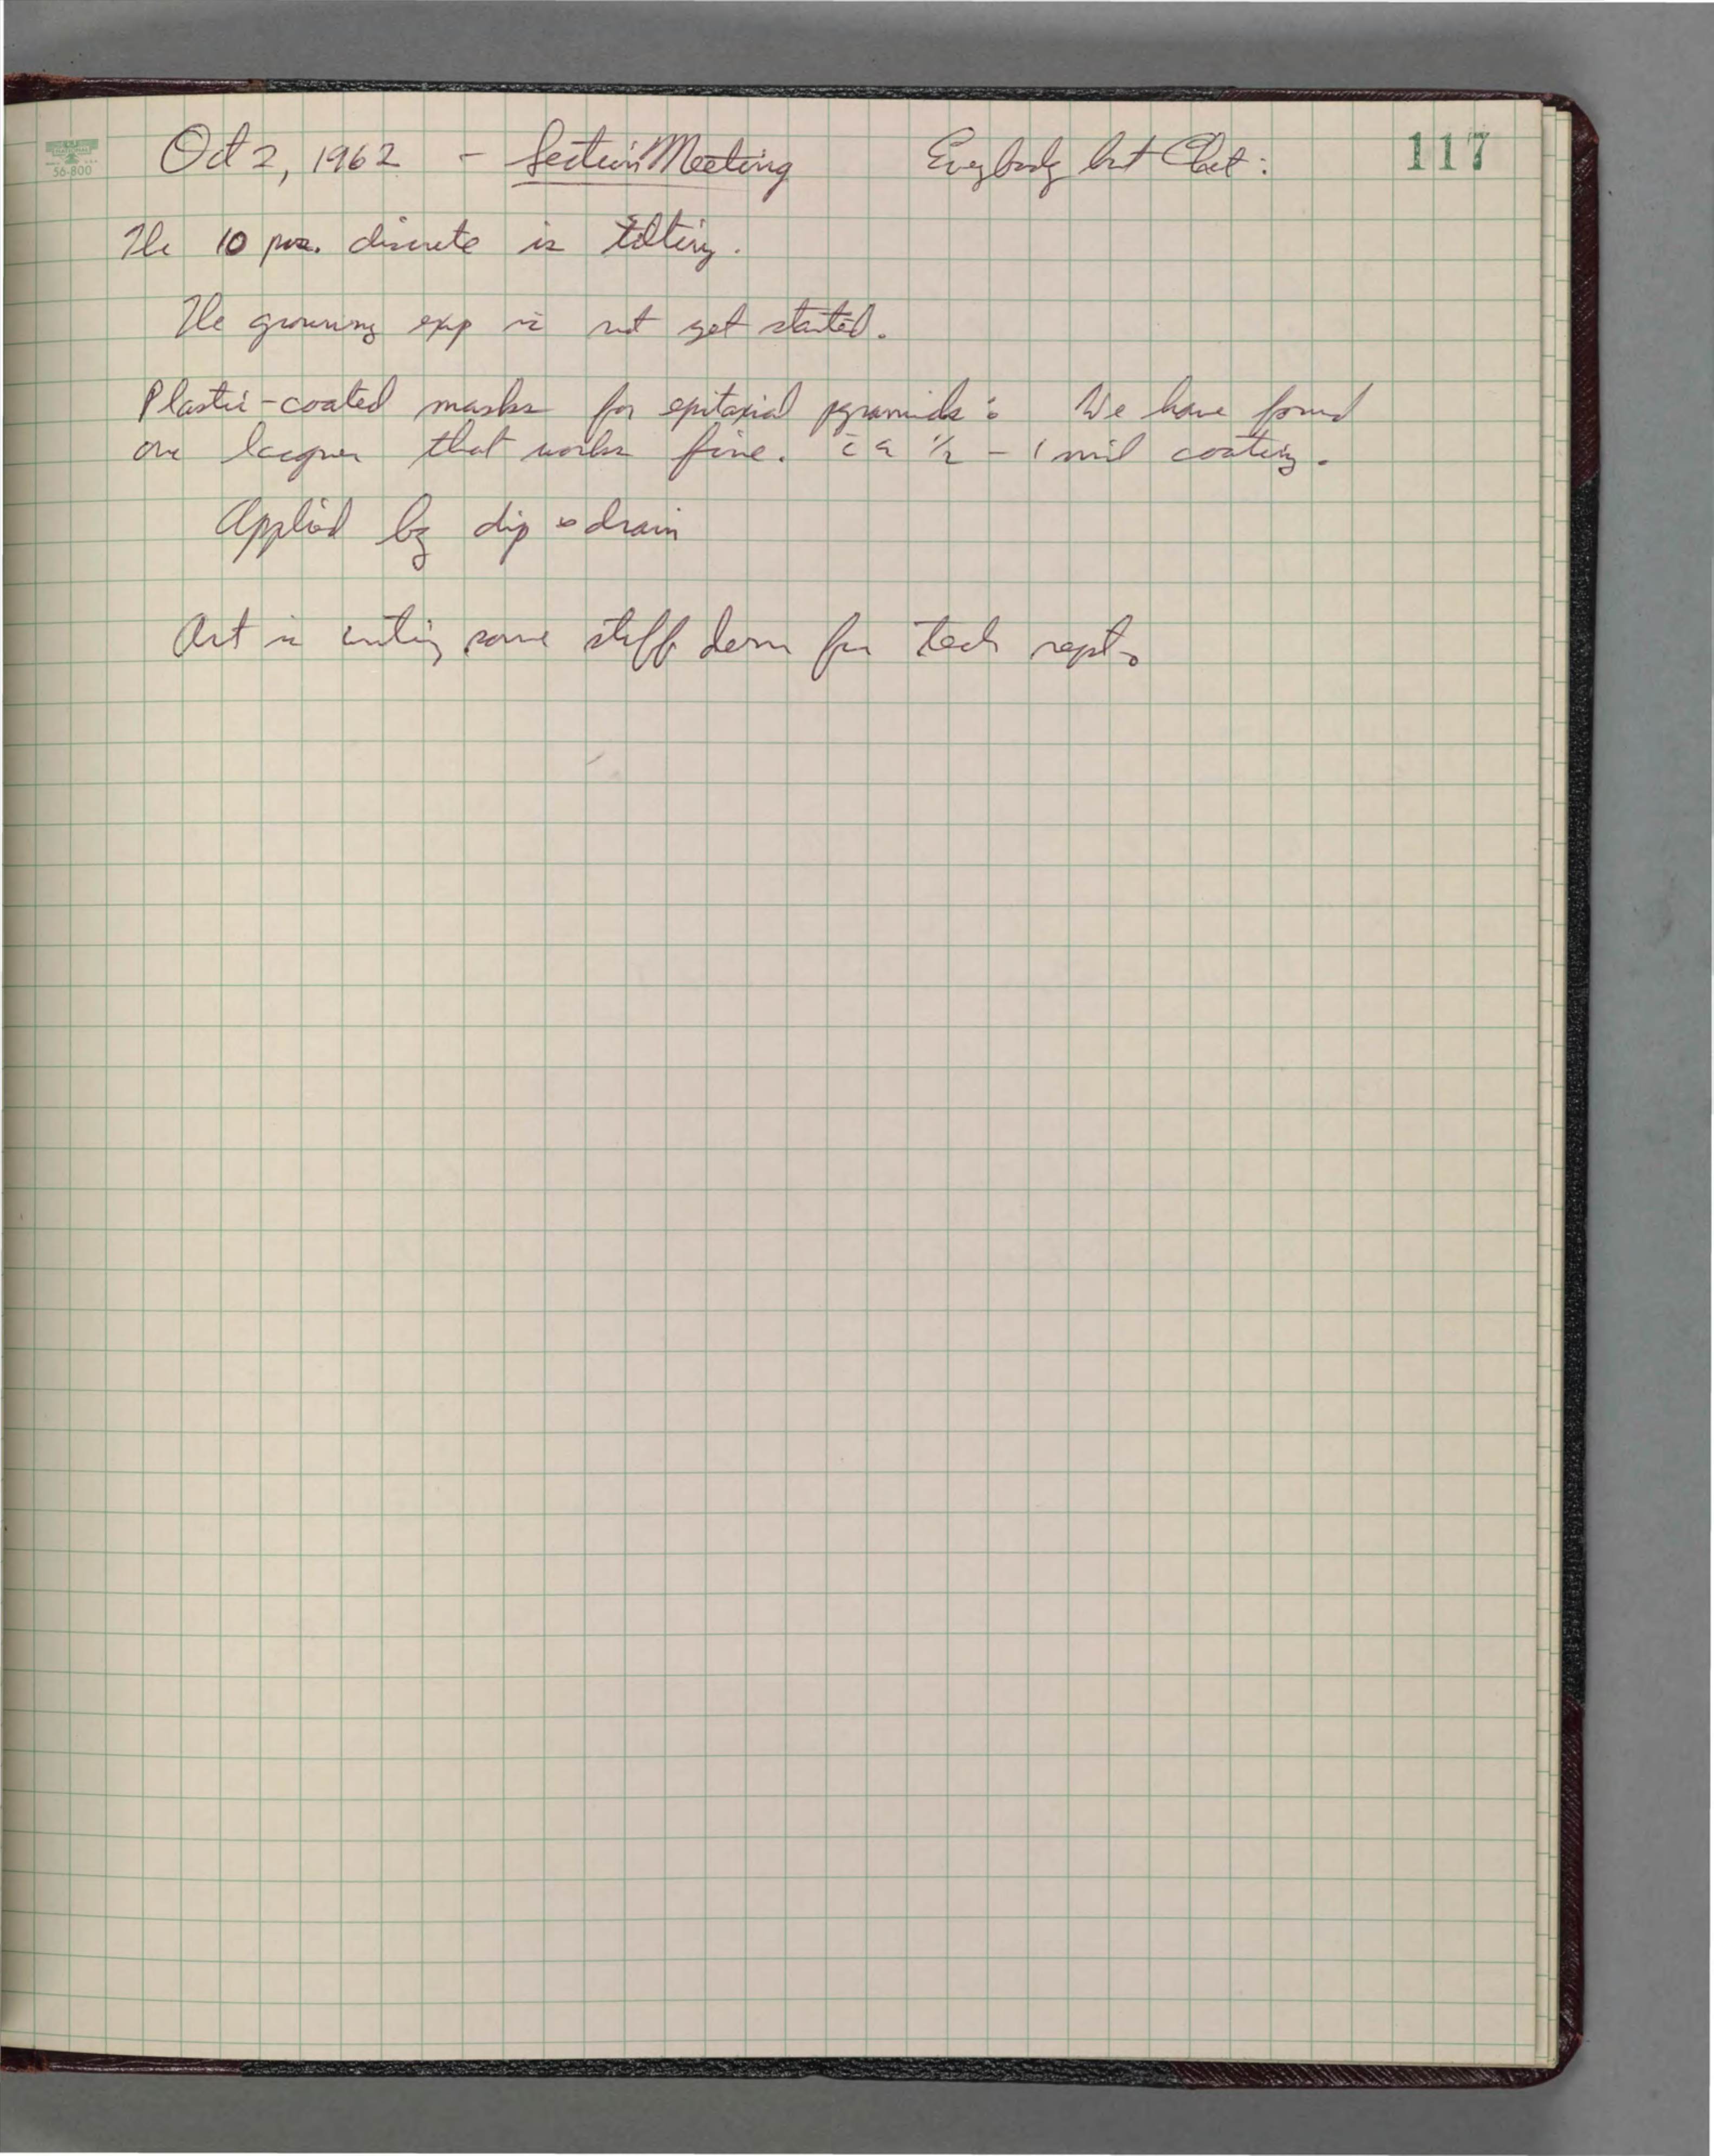 Oct 2, 1962 - Section Meeting Everybody but Chet: 117
56-800
The 10 pos. discrete is tilting.
The growing exp is not yet started.
Plastic-coated masks for epitaxial pyramids: We have found
one lacquer that works fine. c̄ a ½ - 1 mil coating.
Applied by dip & drain
Art is writing some stuff down for tech rept.